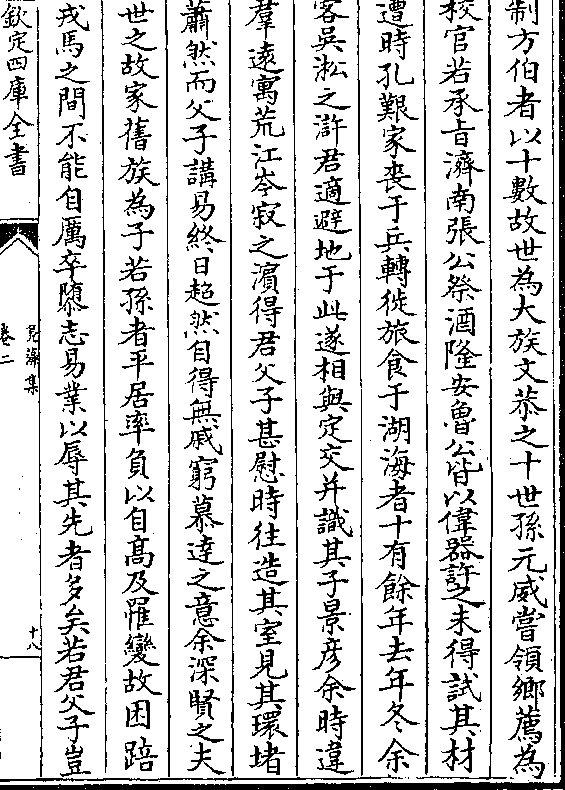 制方伯者以十數故世為大族文恭之十世孫元威嘗領鄉薦為
校官若承旨濟南張公祭酒隆安魯公皆以偉器許之未得試其材
遭時孔艱家喪于兵轉徙旅食于湖海者十有餘年去年冬余
客吳淞之滸君適避地于此遂相與定交并識其子景彦余時違
羣遠寓荒江岑寂之濵得君父子甚慰時往造其室見其環堵
蕭然而父子講易終日超然自得無戚窮慕達之意余深賢之夫
世之故家舊族為子若孫者平居率負以自髙及罹變故困踣
戎馬之間不能自厲卒隳志易業以辱其先者多矣若君父子豈
欽定四庫全書
鳬藻集
卷二
十八